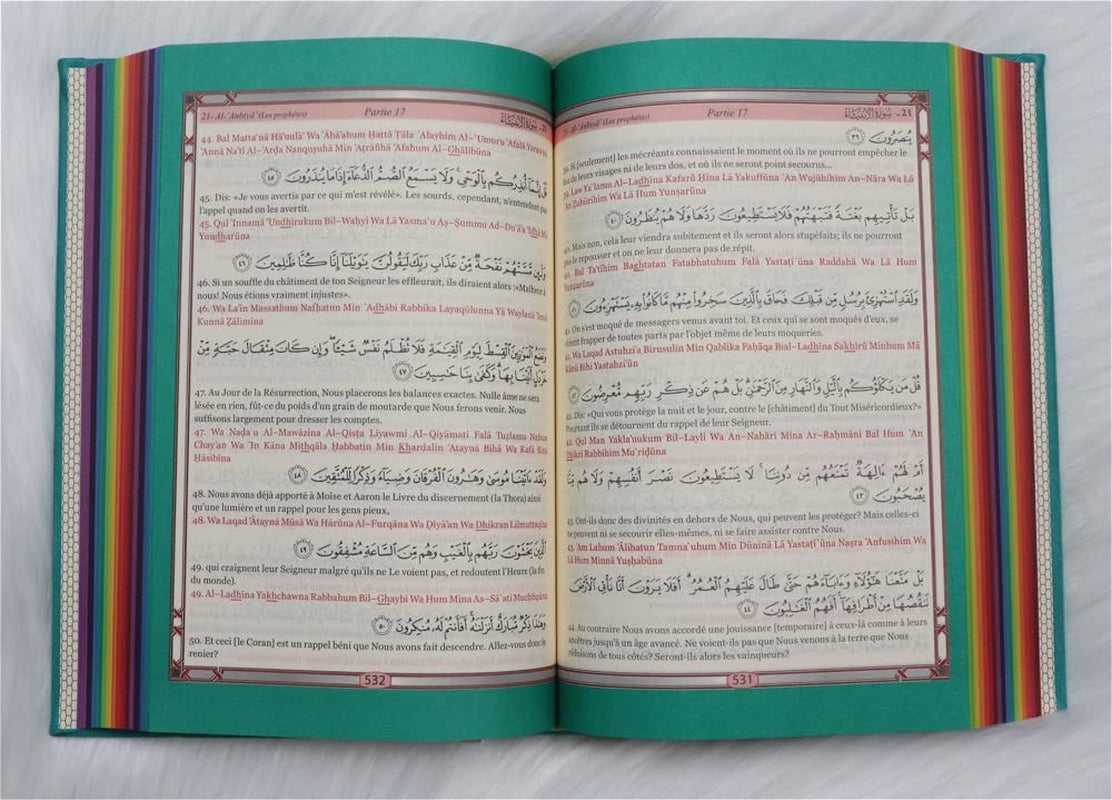 21. سورة الأنبياء
Partie 17
21- Al-'Anbiyâ' (Les prophètes)
يُنصَرُونَ ٣٩
39. Si [seulement] les mécréants connaissaient le moment où ils ne pourront empêcher le
feu de leurs visages ni de leurs dos, et où ils ne seront point secourus...
39. Law Ya`lamu Al-Ladhīna Kafarū Ĥīna Lā Yakuffūna `An Wujūhihim An-Nāra Wa Lā
`An Žuhūrihim Wa Lā Hum Yunşarūna
بَلْ تَأْتِيهِم بَغْتَةً فَتَبْهَتُهُمْ فَلَا يَسْتَطِيعُونَ رَدَّهَا وَلَا هُمْ يُنظَرُونَ ٤٠
40. Mais non, cela leur viendra subitement et ils seront alors stupéfaits; ils ne pourront
pas le repousser et on ne leur donnera pas de répit.
40. Bal Ta'tīhim Baghtatan Fatabhatuhum Falā Yastaţī`ūna Raddahā Wa Lā Hum
Yunžarūna
وَلَقَدِ ٱسْتُهْزِئَ بِرُسُلٍ مِّن قَبْلِكَ فَحَاقَ بِٱلَّذِينَ سَخِرُوا۟ مِنْهُم مَّا كَانُوا۟ بِهِۦ يَسْتَهْزِءُونَ ٤١
41. On s'est moqué de messagers venant avant toi. Et ceux qui se sont moqués d'eux, se
virent frapper de toutes parts par l'objet même de leurs moqueries.
41. Wa Laqad Astuhzi'a Birusulin Min Qablika Faĥāqa Bial-Ladhīna Sakhirū Minhum Mā
Kānū Bihi Yastahzi'ūn
قُلْ مَن يَكْلَؤُكُم بِٱلَّيْلِ وَٱلنَّهَارِ مِنَ ٱلرَّحْمَٰنِ بَلْ هُمْ عَن ذِكْرِ رَبِّهِم مُّعْرِضُونَ ٤٢
42. Dis: «Qui vous protège la nuit et le jour, contre le [châtiment] du Tout Miséricordieux?»
Pourtant ils se détournent du rappel de leur Seigneur.
42. Qul Man Yakla'uukum Bil-Layli Wa An-Nahāri Mina Ar-Raĥmāni Bal Hum `An
Dhikri Rabbihim Mu`riđūna
أَمْ لَهُمْ ءَالِهَةٌ تَمْنَعُهُم مِّن دُونِنَا لَا يَسْتَطِيعُونَ نَصْرَ أَنفُسِهِمْ وَلَا هُم مِّنَّا
يُصْحَبُونَ ٤٣
43. Ont-ils donc des divinités en dehors de Nous, qui peuvent les protéger? Mais celles-ci
ne peuvent ni se secourir elles-mêmes, ni se faire assister contre Nous.
43. 'Am Lahum 'Ālihatun Tamna`uhum Min Dūninā Lā Yastaţī`ūna Naşra 'Anfusihim Wa
Lā Hum Minnā Yuşĥabūna
بَلْ مَتَّعْنَا هَٰٓؤُلَآءِ وَءَابَآءَهُمْ حَتَّىٰ طَالَ عَلَيْهِمُ ٱلْعُمُرُ أَفَلَا يَرَوْنَ أَنَّا نَأْتِى ٱلْأَرْضَ
نَنقُصُهَا مِنْ أَطْرَافِهَآ أَفَهُمُ ٱلْغَٰلِبُونَ ٤٤
44. Au contraire Nous avons accordé une jouissance [temporaire] à ceux-là comme à leurs
ancêtres jusqu'à un âge avancé. Ne voient-ils pas que Nous venons à la terre que Nous
réduisons de tous côtés? Seront-ils alors les vainqueurs?
531
21- Al-'Anbiyâ' (Les prophètes)
Partie 17
سورة الأنبياء .21
44. Bal Matta`nā Hā'uulā' Wa 'Ābā'ahum Ĥattá Ţāla `Alayhim Al-`Umuru 'Afalā Yarawna
'Annā Na'tī Al-'Arđa Nanquşuhā Min 'Aţrāfihā 'Afahum Al-Ghālibūna
قُلْ إِنَّمَآ أُنذِرُكُم بِٱلْوَحْىِ وَلَا يَسْمَعُ ٱلصُّمُّ ٱلدُّعَآءَ إِذَا مَا يُنذَرُونَ ٤٥
45. Dis: «Je vous avertis par ce qui m'est révélé». Les sourds, cependant, n'entendent pas
l'appel quand on les avertit.
45. Qul 'Innamā 'Undhirukum Bil-Waĥyi Wa Lā Yasma`u Aş-Şummu Ad-Du`ā'a 'Idhā Mā
Yundharūna
وَلَئِن مَّسَّتْهُمْ نَفْحَةٌ مِّنْ عَذَابِ رَبِّكَ لَيَقُولُنَّ يَٰوَيْلَنَآ إِنَّا كُنَّا ظَٰلِمِينَ ٤٦
46. Si un souffle du châtiment de ton Seigneur les effleurait, ils diraient alors :«Malheur à
nous! Nous étions vraiment injustes».
46. Wa La'in Massathum Nafĥatun Min `Adhābi Rabbika Layaqūlunna Yā Waylanā 'Innā
Kunnā Žālimīna
وَنَضَعُ ٱلْمَوَٰزِينَ ٱلْقِسْطَ لِيَوْمِ ٱلْقِيَٰمَةِ فَلَا تُظْلَمُ نَفْسٌ شَيْـًٔا وَإِن كَانَ مِثْقَالَ حَبَّةٍ مِّنْ
خَرْدَلٍ أَتَيْنَا بِهَا وَكَفَىٰ بِنَا حَٰسِبِينَ ٤٧
47. Au Jour de la Résurrection, Nous placerons les balances exactes. Nulle âme ne sera
lésée en rien, fût-ce du poids d'un grain de moutarde que Nous ferons venir. Nous
suffisons largement pour dresser les comptes.
47. Wa Nađa`u Al-Mawāzīna Al-Qisţa Liyawmi Al-Qiyāmati Falā Tužlamu Nafsun
Chay'an Wa 'In Kāna Mithqāla Ĥabbatin Min Khardalin 'Ataynā Bihā Wa Kafá Binā
Ĥāsibīna
وَلَقَدْ ءَاتَيْنَا مُوسَىٰ وَهَٰرُونَ ٱلْفُرْقَانَ وَضِيَآءً وَذِكْرًا لِّلْمُتَّقِينَ ٤٨
48. Nous avons déjà apporté à Moïse et Aaron le Livre du discernement (la Thora) ainsi
qu'une lumière et un rappel pour les gens pieux,
48. Wa Laqad 'Ātaynā Mūsá Wa Hārūna Al-Furqāna Wa Điyā'an Wa Dhikran Lilmuttaqīna
ٱلَّذِينَ يَخْشَوْنَ رَبَّهُم بِٱلْغَيْبِ وَهُم مِّنَ ٱلسَّاعَةِ مُشْفِقُونَ ٤٩
49. qui craignent leur Seigneur malgré qu'ils ne Le voient pas, et redoutent l'Heure (la fin
du monde).
49. Al-Ladhīna Yakhchawna Rabbahum Bil-Ghaybi Wa Hum Mina As-Sā`ati Muchfiqūna
وَهَٰذَا ذِكْرٌ مُّبَارَكٌ أَنزَلْنَٰهُ أَفَأَنتُمْ لَهُۥ مُنكِرُونَ ٥٠
50. Et ceci [le Coran] est un rappel béni que Nous avons fait descendre. Allez-vous donc le
renier?
532